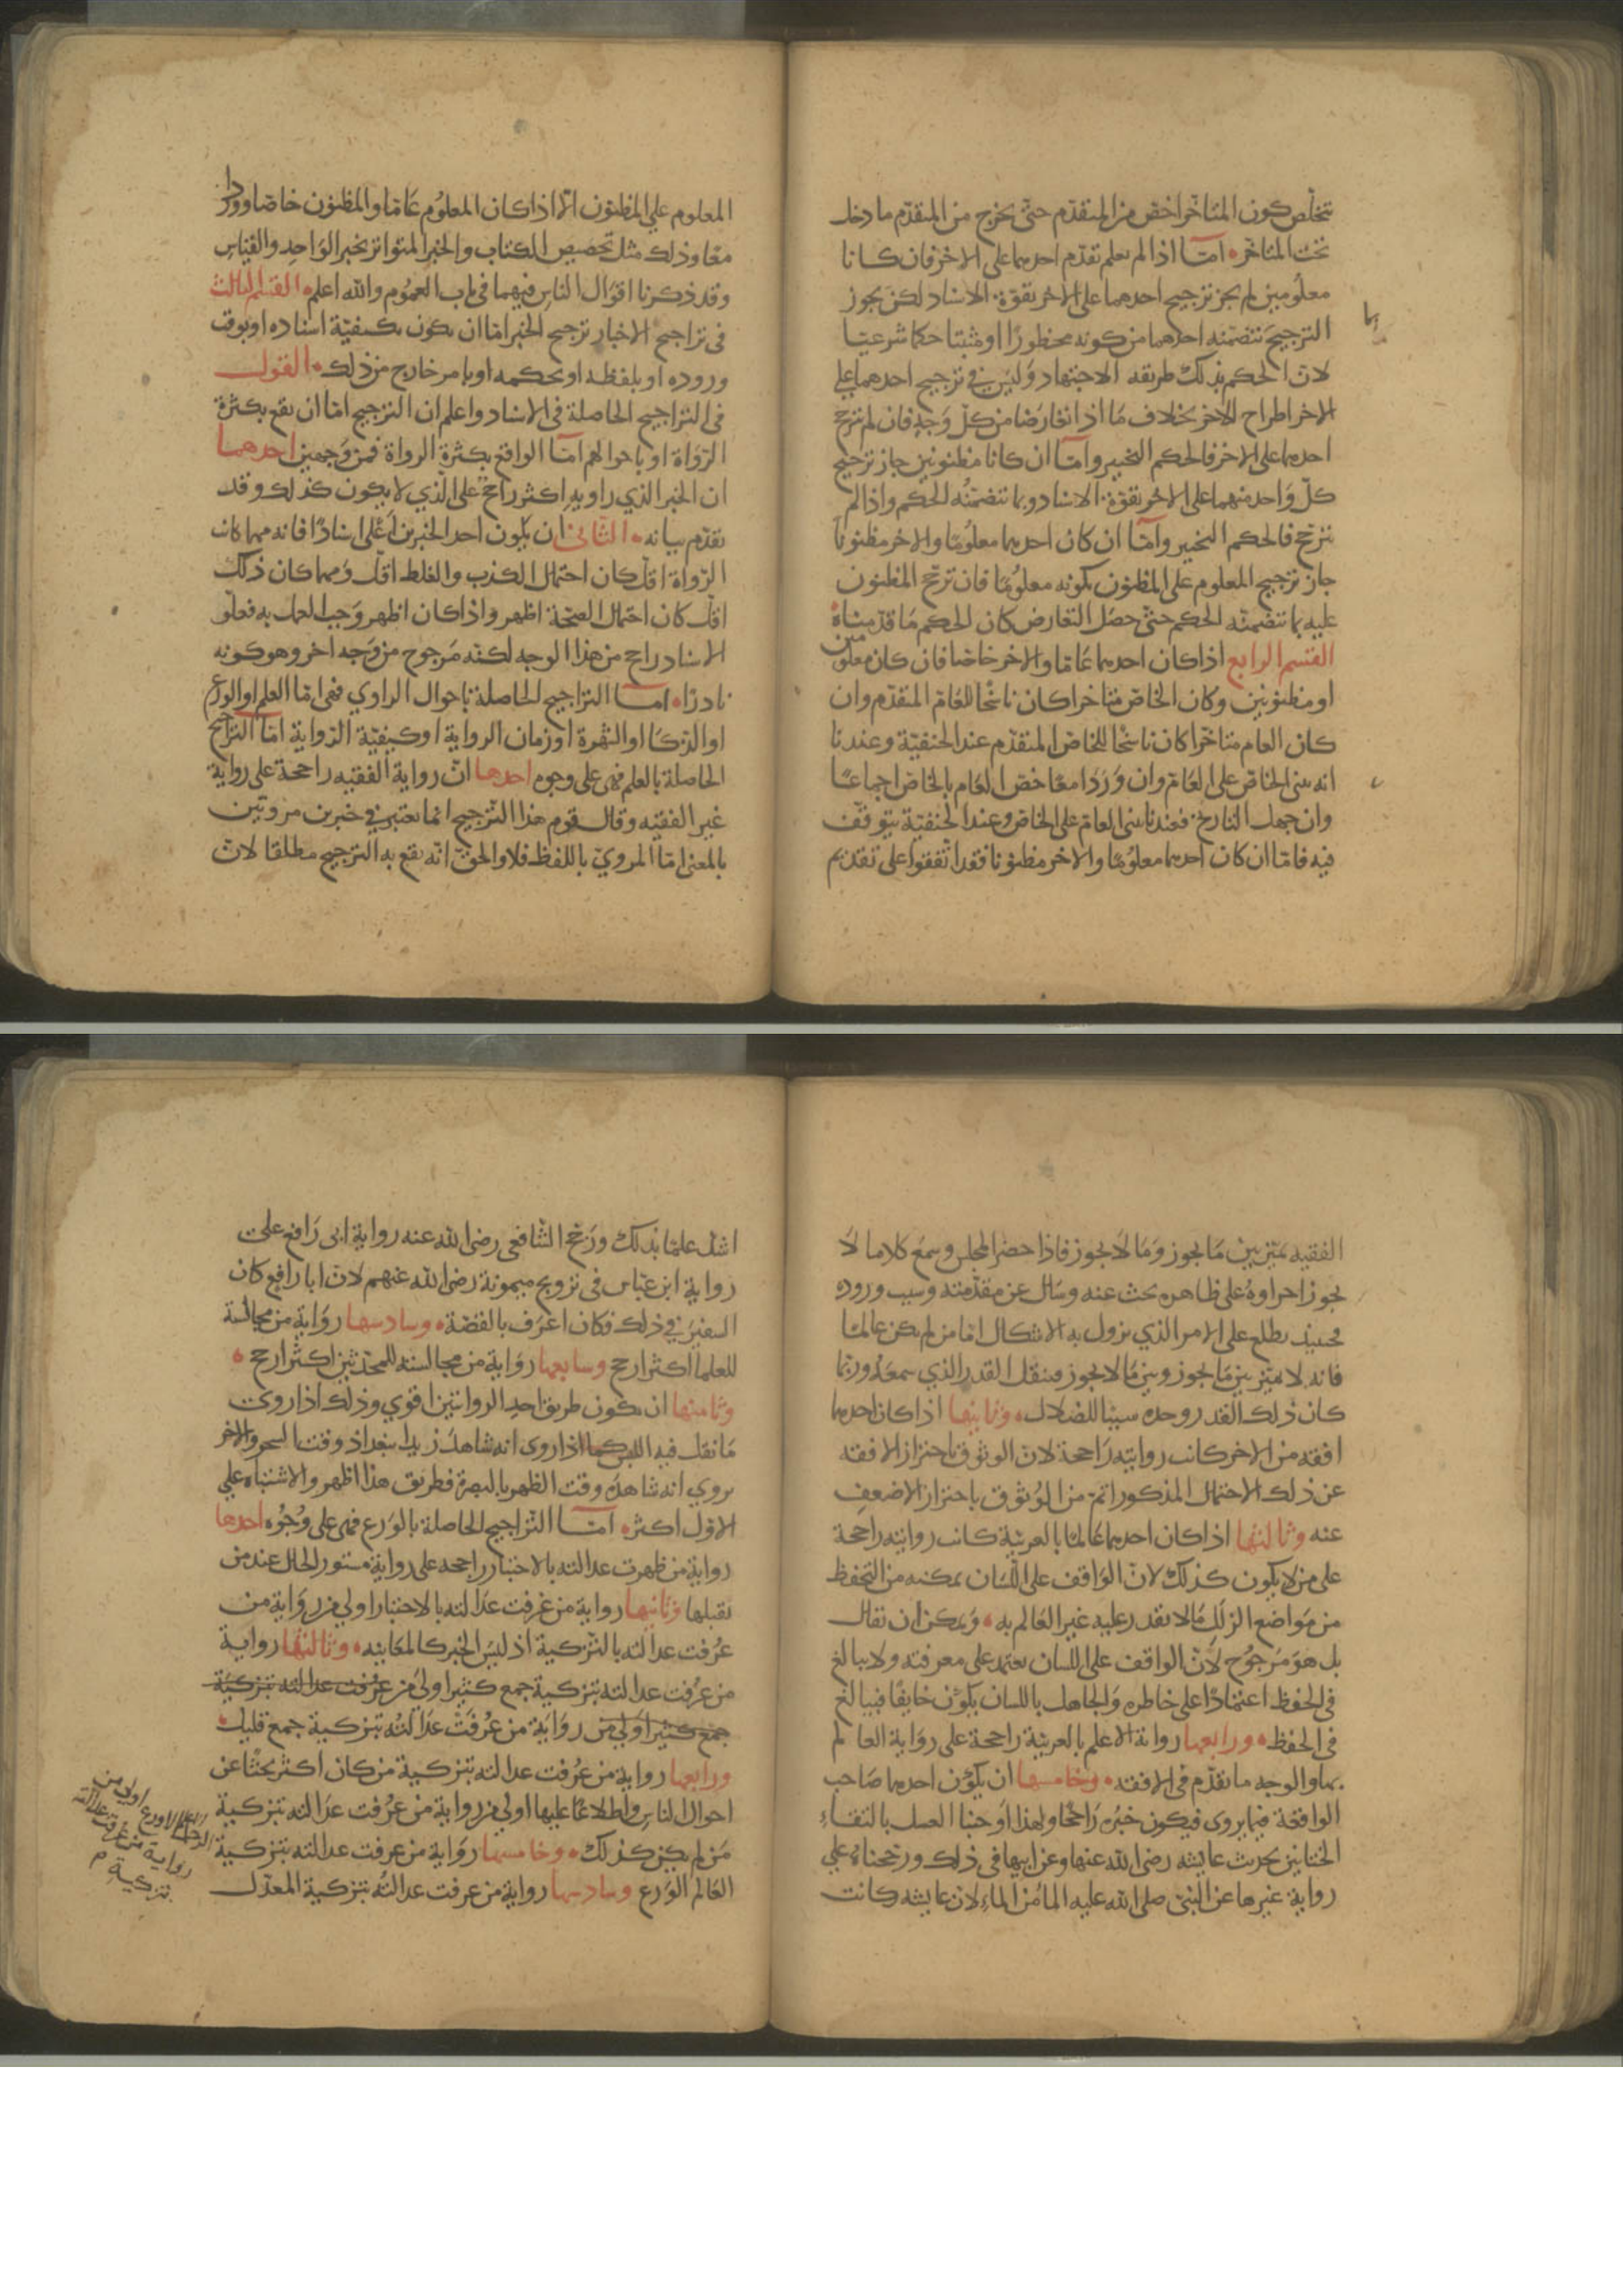 تخلص كون المتاخر اخص من المتقدم حتى يخرج من المتقدم ما دخل
تحت المتاخر امّا اذا لم يعلم تقدم احدهما على الاخر فان كانا
معلومين لم يجز ترجيح احدهما على الاخر بقوة الاسناد لكن يجوز
الترجيح بتضمنه احدهما من كونه محظورًا او مثبتا حكما شرعيّا
بما
لان الحكم بذلك طريقه الاجتهاد وليس في ترجيح احدهما على
الاخر اطراح الاخر بخلاف ما اذا تعارضا من كل وجهٍ فان لم يترجح
احدهما على الاخر فالحكم التخيير وامّا ان كانا مظنونين جاز ترجيح
كلّ واحد منهما على الاخر بقوّة الاسناد وبما تتضمنُه الحكم واذا لم
يترجح فالحكم التخيير وامّا ان كان احدهما معلومًا والاخر مظنونا
جاز ترجيح المعلوم على المظنون بكونه معلومًا فان ترجح المظنون
عليه بما تتضمنه الحكم حتى حصل التعارض كان الحكم ما قدّمناه
القسم الرابع اذا كان احدهما عاما والاخر خاصا فان كان معلومين
او مظنونين وكان الخاص متاخرا كان ناسخًا للعام المتقدم وان
كان العام متاخرًا كان ناسخًا للخاص المتقدم عند الحنفيّة وعندنا
انه يبنى الخاص على العامّ وان وردا معًا خص العام بالخاص اجماعًا
وان جهل التاريخ فعندنا يبنى العام على الخاص وعند الحنفيّة يتوقف
فيه فامّا ان كان احدهما معلومًا والاخر مظنونا فقد اتفقوا على تقديم
المعلوم على المظنون الّا اذا كان المعلوم عَامّا والمظنون خاصا ووردا
معًا وذلك مثل تخصيص الكتاب والخبر المتواتر بخبر الواحد والقياس
وقد ذكرنا اقوال الناس فيهما في باب العموم والله اعلم القسم الثالث
في تراجيح الاخبار ترجيح الخبر امّا ان يكون بكيفيّة اسناده او بوقت
وروده او بلفظه او بحكمه او بامر خارج من ذلك القول
في التراجيح الحاصلة في الاسناد واعلم ان الترجيح امّا ان يقع بكثرة
الرواة او باحوالهم امّا الواقع بكثرة الرواة فمن وجهين احدهما
ان الخبر الذي راويه اكثر راجحٌ على الّذي لا يكون كذلك وقد
تقدّم بيانه الثاني ان يكون احد الخبرين اعلى اسنادًا فانه مهما كان
الرواة اقلّ كان احتمال الكذب والغلط اقلّ ومهما كان ذلك
اقل كان احتمال الصحّة اظهر واذا كان اظهر وجب العمل به فعلو
الاسناد راجح من هذا الوجه لكنّه مرجوح من وجه اخر وهو كونه
نادرًا امّا التراجيح الحاصلة باحوال الراوي فهى امّا العلم او الورع
او الذكا او الشهرة او زمان الرواية او كيفيّة الرواية امّا التراجح
الحاصلة بالعلم فهى على وجوه احدها انّ رواية الفقيه راجحة على رواية
غير الفقيه وقال قوم هذا الترجيح انما يعتبر في خبرين مرويّين
بالمعنى امّا المرويّ باللفظ فلا والحق انّه يقع به الترجيح مطلقا لانّ
الفقيه يميّز بين ما يجوز وما لا يجوز فاذا حضر المجلس وسمع كلاما لا
يجوز اجراوه على ظاهره بحث عنه وسال عن مقدّمته وسبب وروده
فحينيذ يطلع على الامر الذي يزول به الاشكال امّا من لم يكن عالمًا
فانه لا يميّز بين ما يجوز وبين ما لا يجوز فينقل القدر الذي سمعه وربّما
كان ذلك القدر وحده سببًا للضلال وثانيها اذا كان احدهما
افقه من الاخر كانت روايته راجحة لان الوثوق باحتراز الافقه
عن ذلك الاحتمال المذكور اتم من الوثوق باحتراز الاضعف
عنه وثالثها اذا كان احدهما عالمًا بالعربيّة كانت روايته راجحة
على من لا يكون كذلك لانّ الواقف على اللسان يمكنه من التحفظ
من مواضع الزلل ما لا يقدر عليه غير العالم به ويمكن ان يقال
بل هو مرجوح لانّ الواقف على اللسان يعتمد على معرفته ولا يبالغ
في الحفظ اعتمادًا على خاطره والجاهل باللسان يكون خايفًا فيبالغ
في الحفظ ورابعها رواية الاعلم بالعربيّة راجحة على رواية العالم
بها والوجه ما تقدّم في الافقه وخامسها ان يكون احدهما صاحب
الواقعة فيما يروى فيكون خبره راجحًا ولهذا اوجبنا الغسل بالتقاء
الختانين بحديث عايشه رضى الله عنها وعن ابيها في ذلك ورجحناه على
رواية غيرها عن النبيّ صلى الله عليه الما من الماء لان عايشه كانت
اشدّ علمًا بذلك ورجح الشافعى رضى الله عنه رواية ابى رافع على
رواية ابن عبّاس في تزويج ميمونة رضى الله عنهم لان ابا رافع كان
السفير في ذلك فكان اعرف بالقصّة وسادسها رواية من مجالسته
للعلما اكثر ارجح وسابعها رواية من مجالسته للمحدّثين اكثر ارجح
وثامنها ان يكون طريق احد الروايتين اقوي وذلك اذا روى
ما نقل فيه اللبس كما اذا روى انه شاهد زيدا ببغداذ وقت السحر والاخر
يروي انه شاهده وقت الظهر بالبصرة فطريق هذا اظهر والاشتباه على
الاوّل اكثر امّا التراجيح الحاصلة بالورع فهى على وجوه احدها
رواية من ظهرت عدالته بالاختبار راجحه على رواية مستور الحال عند من
يقبلها وثانيها رواية من عرفت عدالته بالاختبار اولي من رواية من
عرفت عدالته بالتزكية اذ ليس الخبر كالمعاينه وثالثها رواية
من عرفت عدالته بتزكية جمع كثير اولى من عرفت عدالته بتزكية
جمع كثير اولي من رواية من عرفت عدالته بتزكية جمع قليل
ورابعها رواية من عرفت عدالته بتزكية من كان اكثر بحثًا عن
احوال الناس واطلاعًا عليها اولي من رواية من عرفت عدالته بتزكية
من لم يكن كذلك وخامسها رواية من عرفت عدالته بتزكية
العالم الورع وسادسها رواية من عرفت عدالته بتزكية المعدّل
الاورع اولى من
رواية من عرفت عدالته
بتزكية